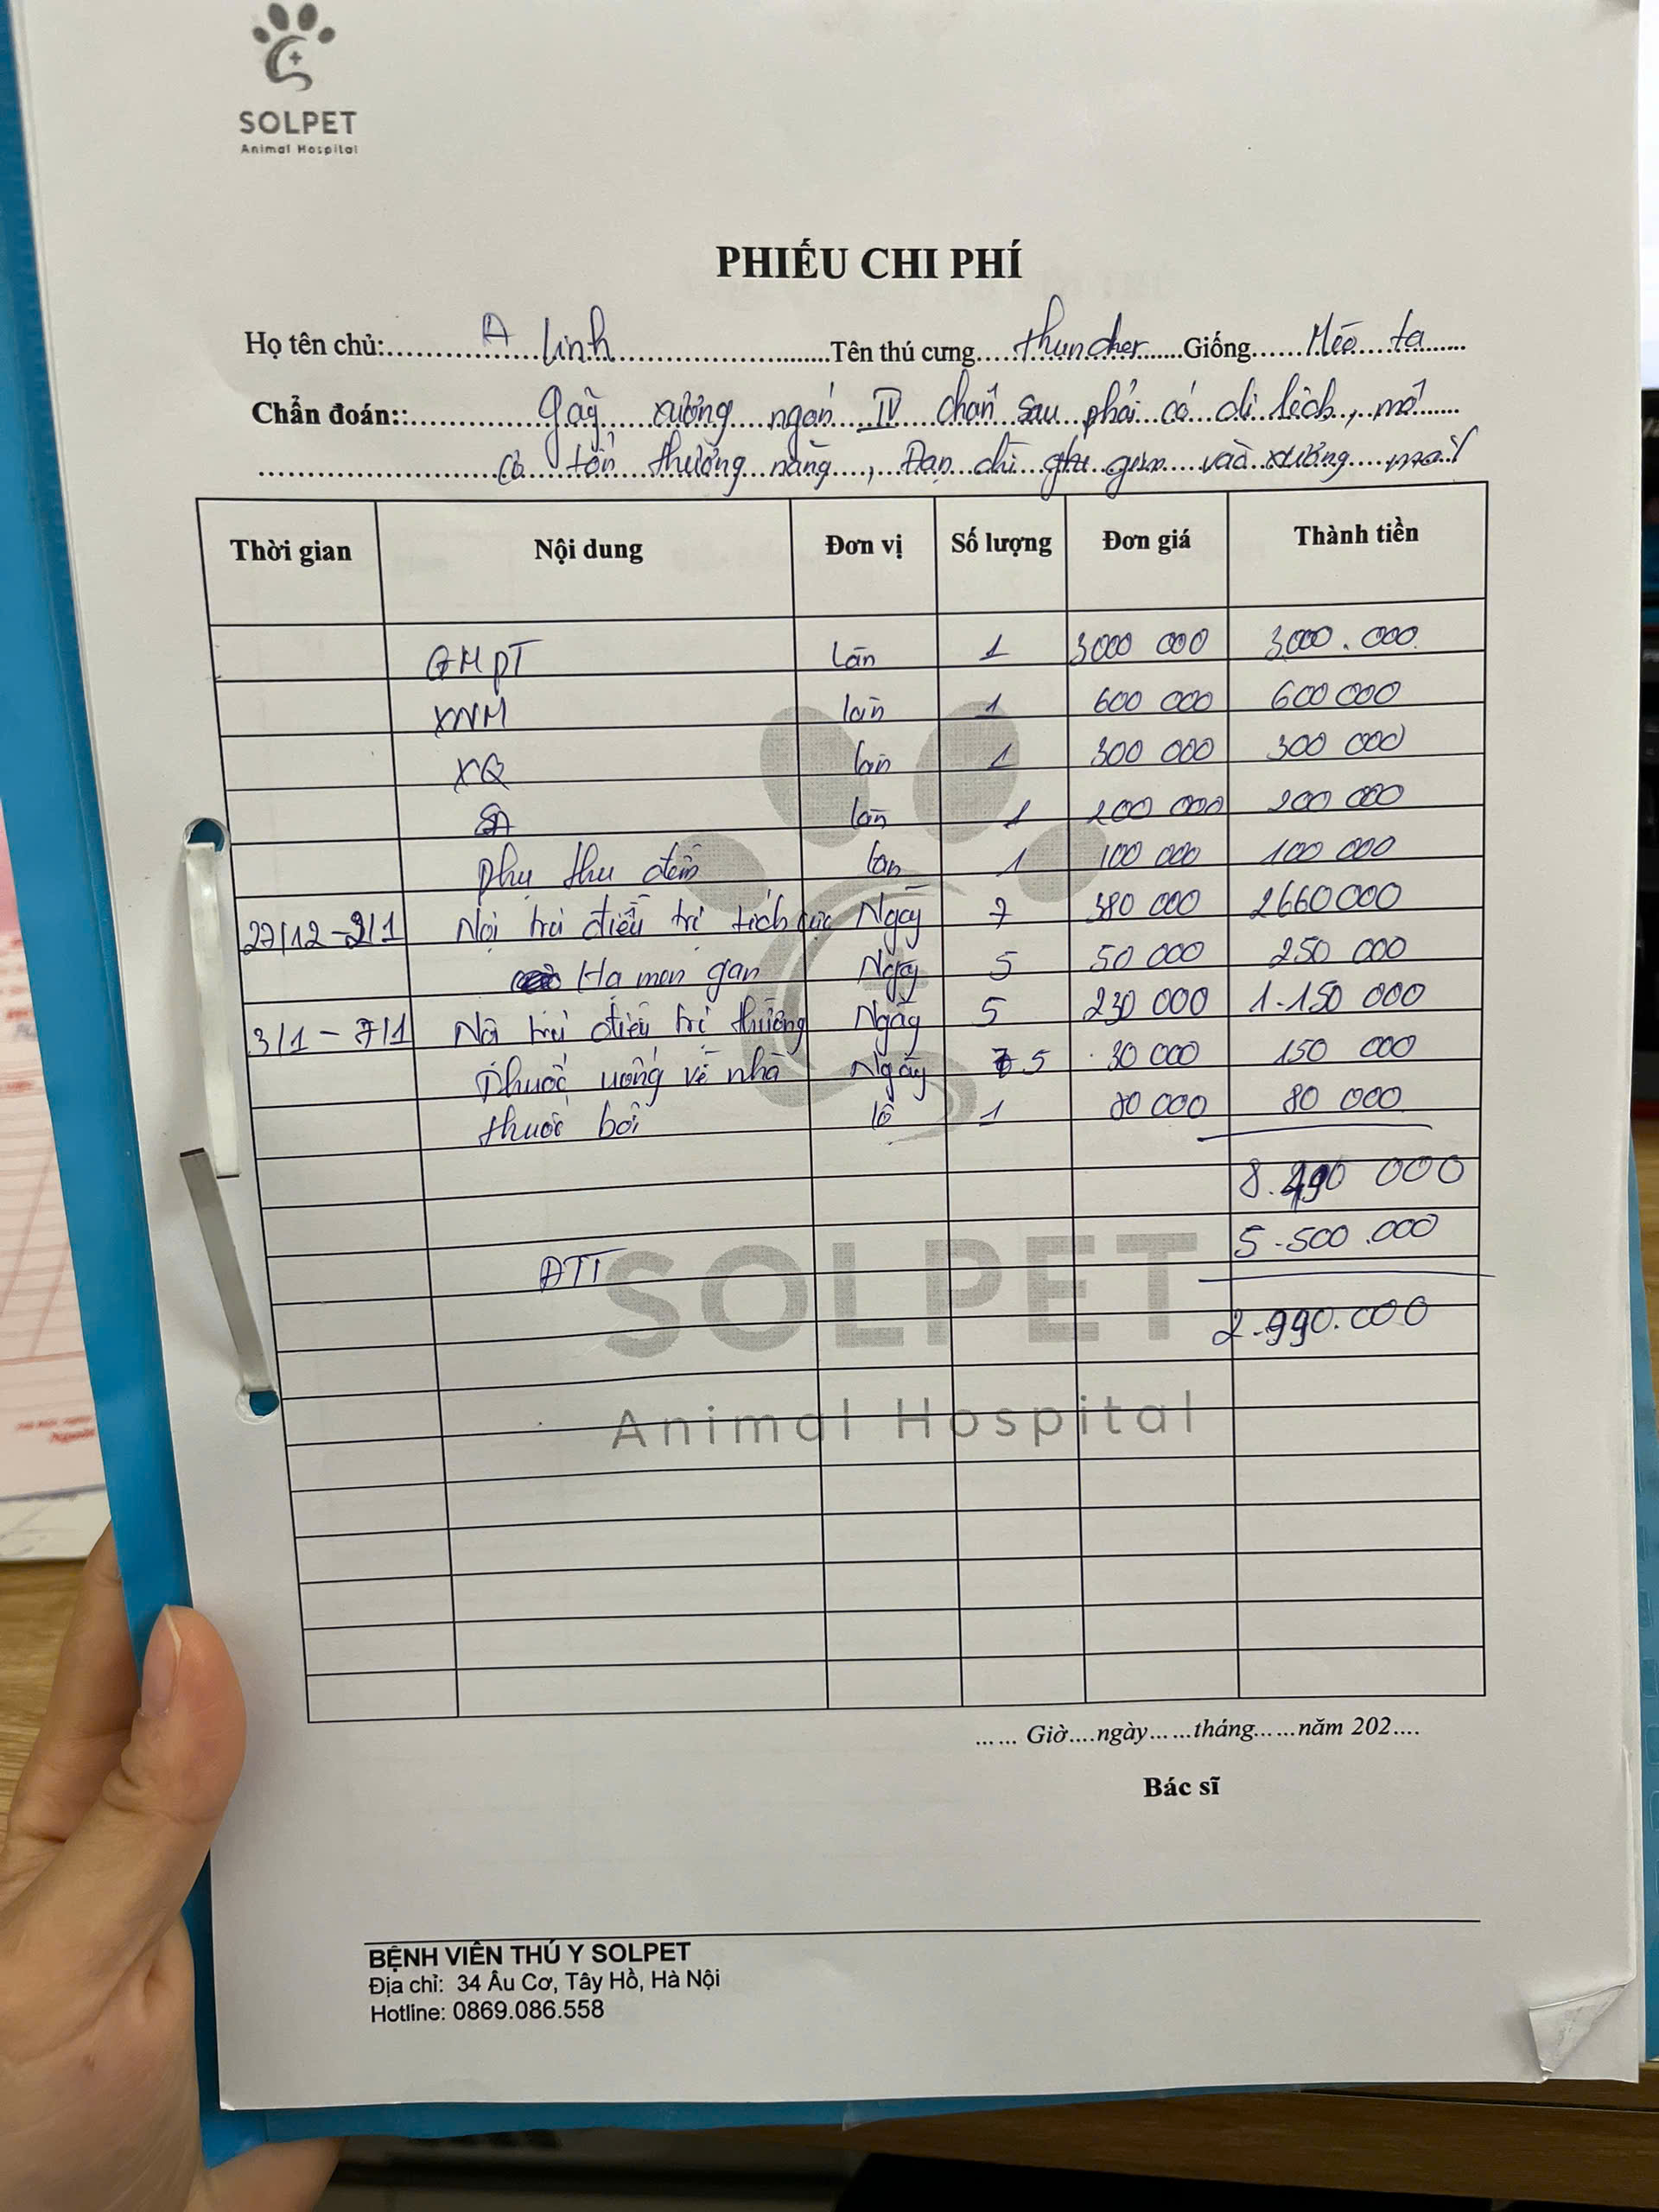 SOLPET
Animal Hospital
PHIẾU CHI PHÍ
Họ tên chủ: A Linh Tên thú cưng thuncher Giống Mèo ta
Chẩn đoán:: gãy xương ngón IV chân sau phải có di lệch, mô
có tổn thương nặng, Đạn chì găm vào xương
Thời gian Nội dung Đơn vị Số lượng Đơn giá Thành tiền
GMPT Lần 1 3000 000 3.000.000
XNM lần 1 600 000 600 000
XQ lần 1 300 000 300 000
SA lần 1 200 000 200 000
Phụ thu đêm lần 1 100 000 100 000
27/12 - 2/1 Nội trú điều trị tích cực Ngày 7 380 000 2660000
Hạ men gan Ngày 5 50 000 250 000
3/1 - 7/1 Nội trú điều trị thường Ngày 5 230 000 1.150 000
Thuốc uống về nhà Ngày 5 30 000 150 000
thuốc bôi lọ 1 80 000 80 000
8.490 000
ĐTT 5.500.000
2.990.000
SOLPET
Animal Hospital
...... Giờ....ngày......tháng......năm 202....
Bác sĩ
BỆNH VIỆN THÚ Y SOLPET
Địa chỉ: 34 Âu Cơ, Tây Hồ, Hà Nội
Hotline: 0869.086.558